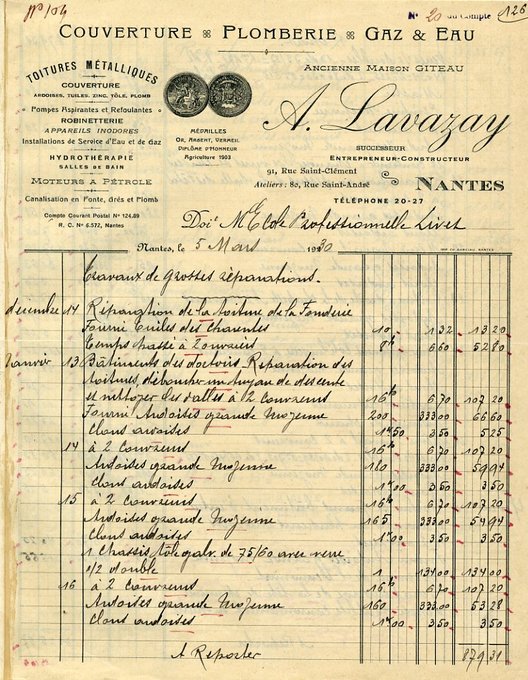 Nº 104
Nº 20 du Compte 126
COUVERTURE ※ PLOMBERIE ※ GAZ & EAU
TOITURES MÉTALLIQUES
COUVERTURE
ARDOISES, TUILES, ZINC, TÔLE, PLOMB
Pompes Aspirantes et Refoulantes
ROBINETTERIE
APPAREILS INODORES
Installations de Service d'Eau et de Gaz
HYDROTHÉRAPIE
SALLES DE BAIN
MOTEURS A PÉTROLE
Canalisation en Fonte, Grés et Plomb
Compte Courant Postal Nº 124.89
R. C. Nº 6.572, Nantes
MÉDAILLES
OR, ARGENT, VERMEIL
DIPLÔME D'HONNEUR
Agriculture 1903
ANCIENNE MAISON GITEAU
A. Lavazay
SUCCESSEUR
ENTREPRENEUR-CONSTRUCTEUR
91, Rue Saint-Clément
Ateliers: 82, Rue Saint-André
NANTES
TÉLÉPHONE 20-27
Doit M Ecole Professionnelle Livet
Nantes, le 5 Mars 1930
Travaux de Grosses réparations.
décembre 14 Réparation de la toiture de la Fonderie
Fourni Tuiles des Charentes 10 1,32 13 20
Temps passé à 2 ouvriers 8h 6,60 52 80
Janvier 13 Bâtiments des Réparation des
toitures, déboucher un tuyau de descente
et nettoyer les dalles à 2 couvreurs 16h 6,70 107 20
Fourni Ardoises grande Moyenne 200 333.00 66 60
Clous ardoises 1k50 3,50 5 25
14 à 2 Couvreurs 16h 6,70 107 20
Ardoises grande Moyenne 180 333.00 59 94
Clous ardoises 1k00 3,50 3,50
15 à 2 Couvreurs 16h 6,70 107 20
Ardoises grande Moyenne 165 333.00 54 94
Clous ardoises 1k00 3,50 3,50
1 Chassis tôle galv. de 75/60 avec verre
1/2 double 1 134.00 134 00
16 à 2 Couvreurs 16h 6,70 107 20
Ardoises grande Moyenne 160 333.00 53 28
Clous ardoises 1k00 3,50 3,50
A Reporter 879 31